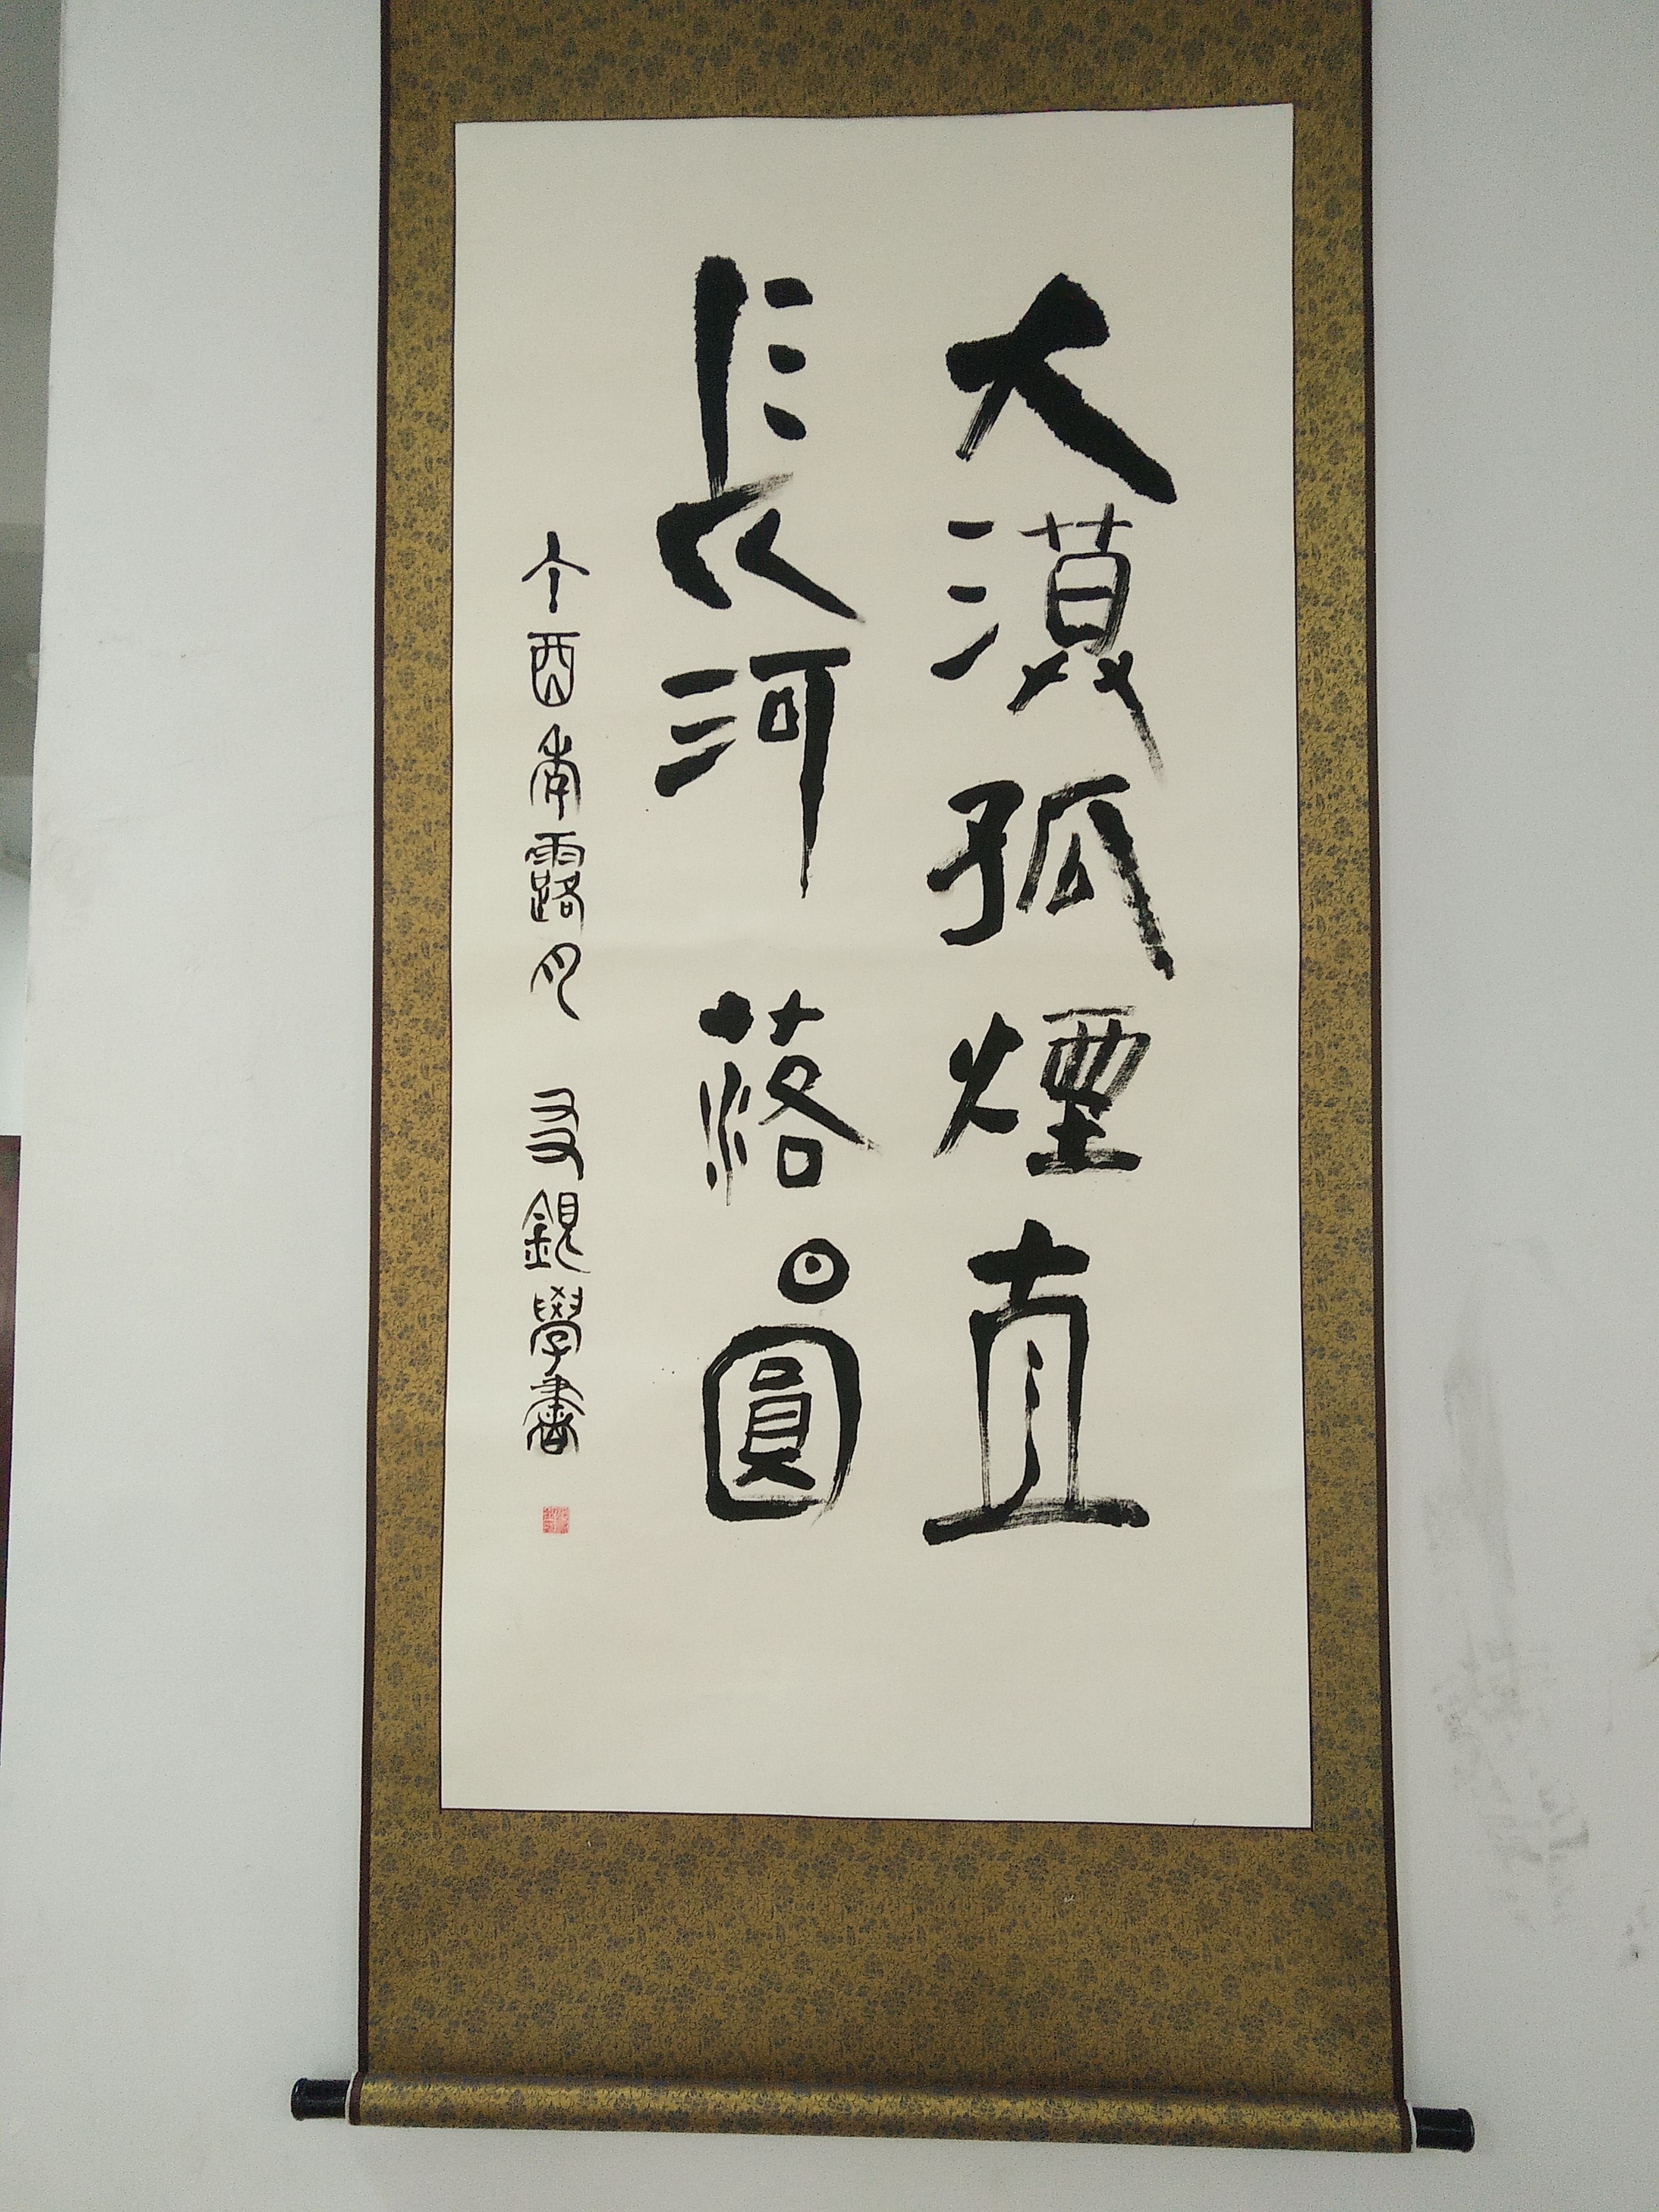 大漠孤煙直
長河落日圓
丁酉年露月 友鋧學書